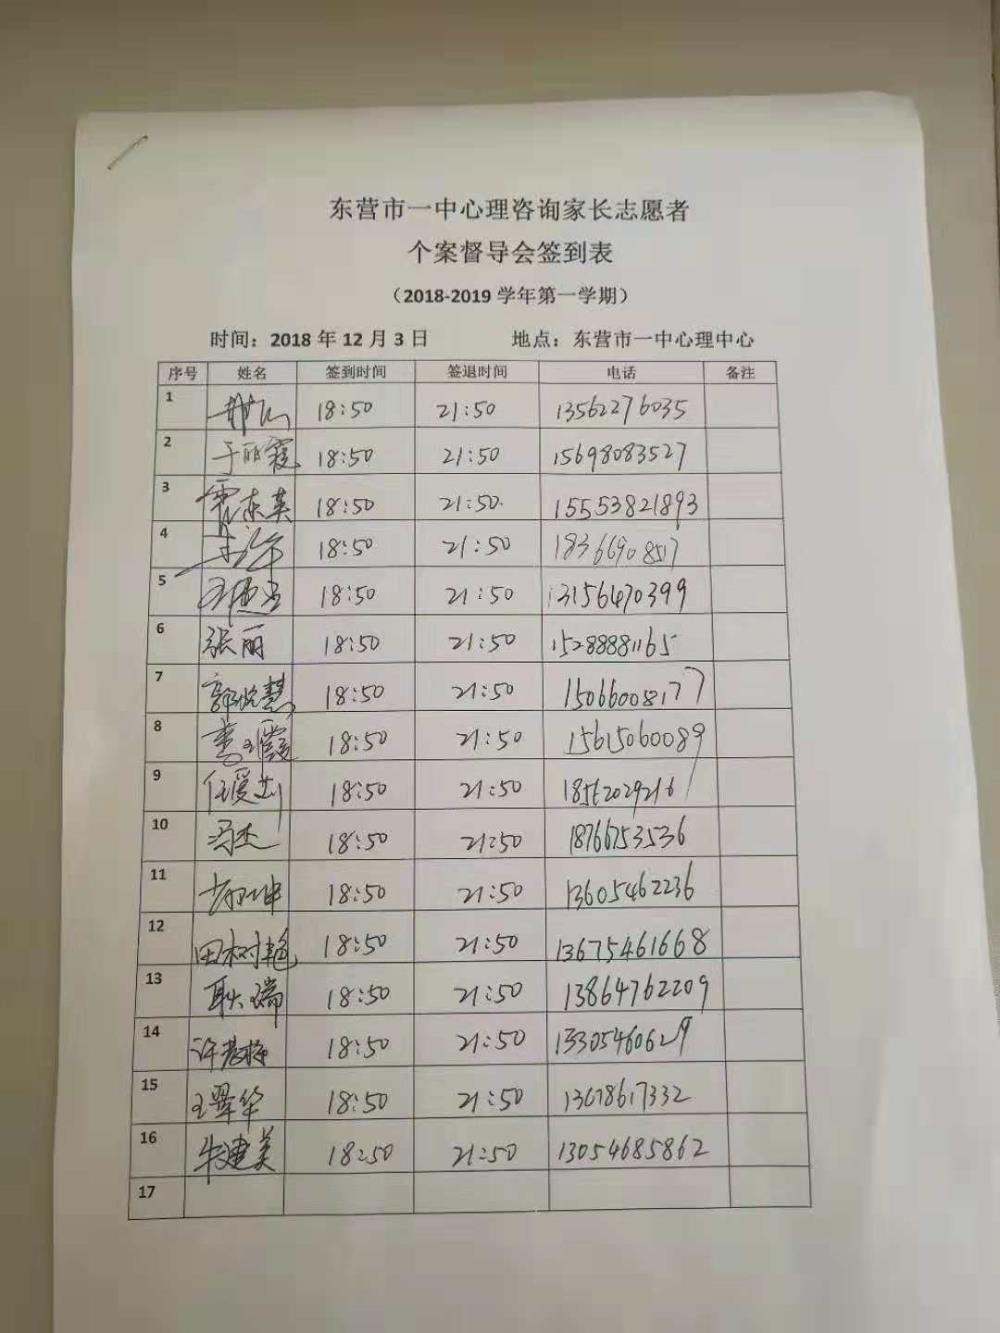 东营市一中心理咨询家长志愿者
个案督导会签到表
（2018-2019 学年第一学期）
时间：2018 年 12 月 3 日 地点：东营市一中心理中心
序号 姓名 签到时间 签退时间 电话 备注
1 18:50 21:50 13562276035
2 于丽霞 18:50 21:50 15698083527
3 霍东英 18:50 21:50 15553821893
4 18:50 21:50 18366908517
5 18:50 21:50 13156470399
6 张丽 18:50 21:50 15288881165
7 郭悦慧 18:50 21:50 15066008177
8 李玉霞 18:50 21:50 15615060089
9 任爱 18:50 21:50 18562029216
10 冯杰 18:50 21:50 18766753536
11 18:50 21:50 13605462236
12 田树艳 18:50 21:50 13675461668
13 耿瑞 18:50 21:50 13864762209
14 18:50 21:50 13305460629
15 王翠华 18:50 21:50
16 朱建美 18:50 21:50 13054685862
17